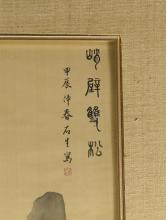 峭壁雙松
甲辰仲春石生寫